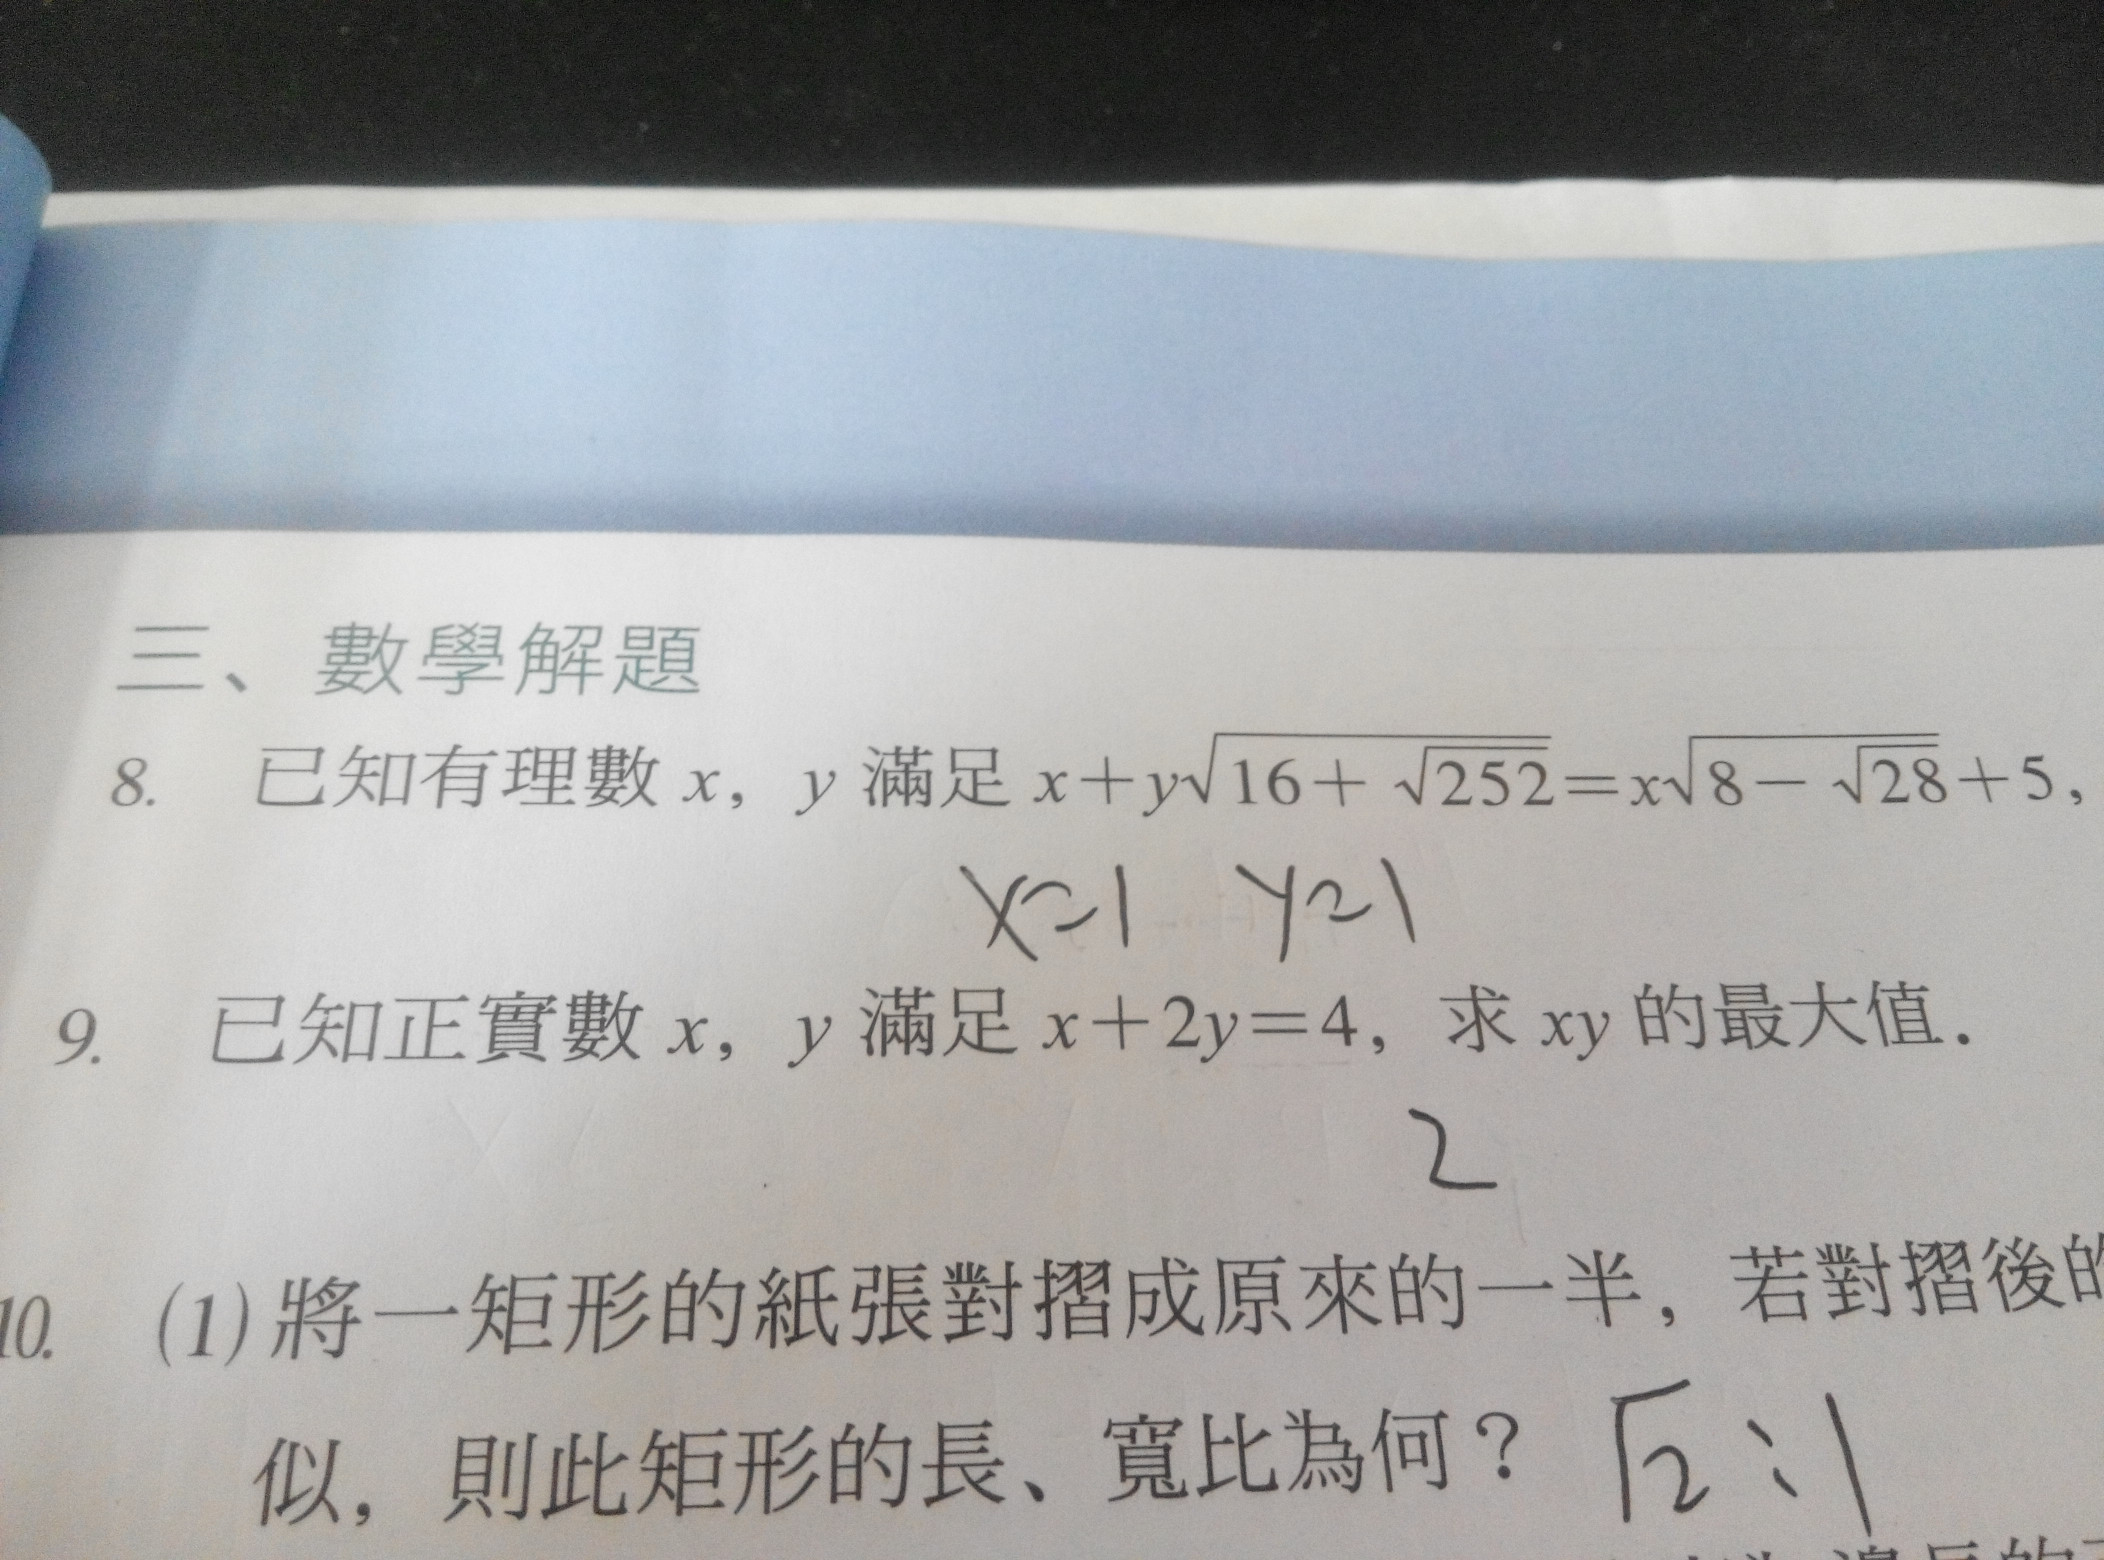 三、數學解題
8. 已知有理數 x，y 滿足 x+y√(16+√252)=x√(8-√28)+5，
x=1 y=1
9. 已知正實數 x，y 滿足 x+2y=4，求 xy 的最大值．
2
10. (1)將一矩形的紙張對摺成原來的一半，若對摺後的
似，則此矩形的長、寬比為何？ √2:1